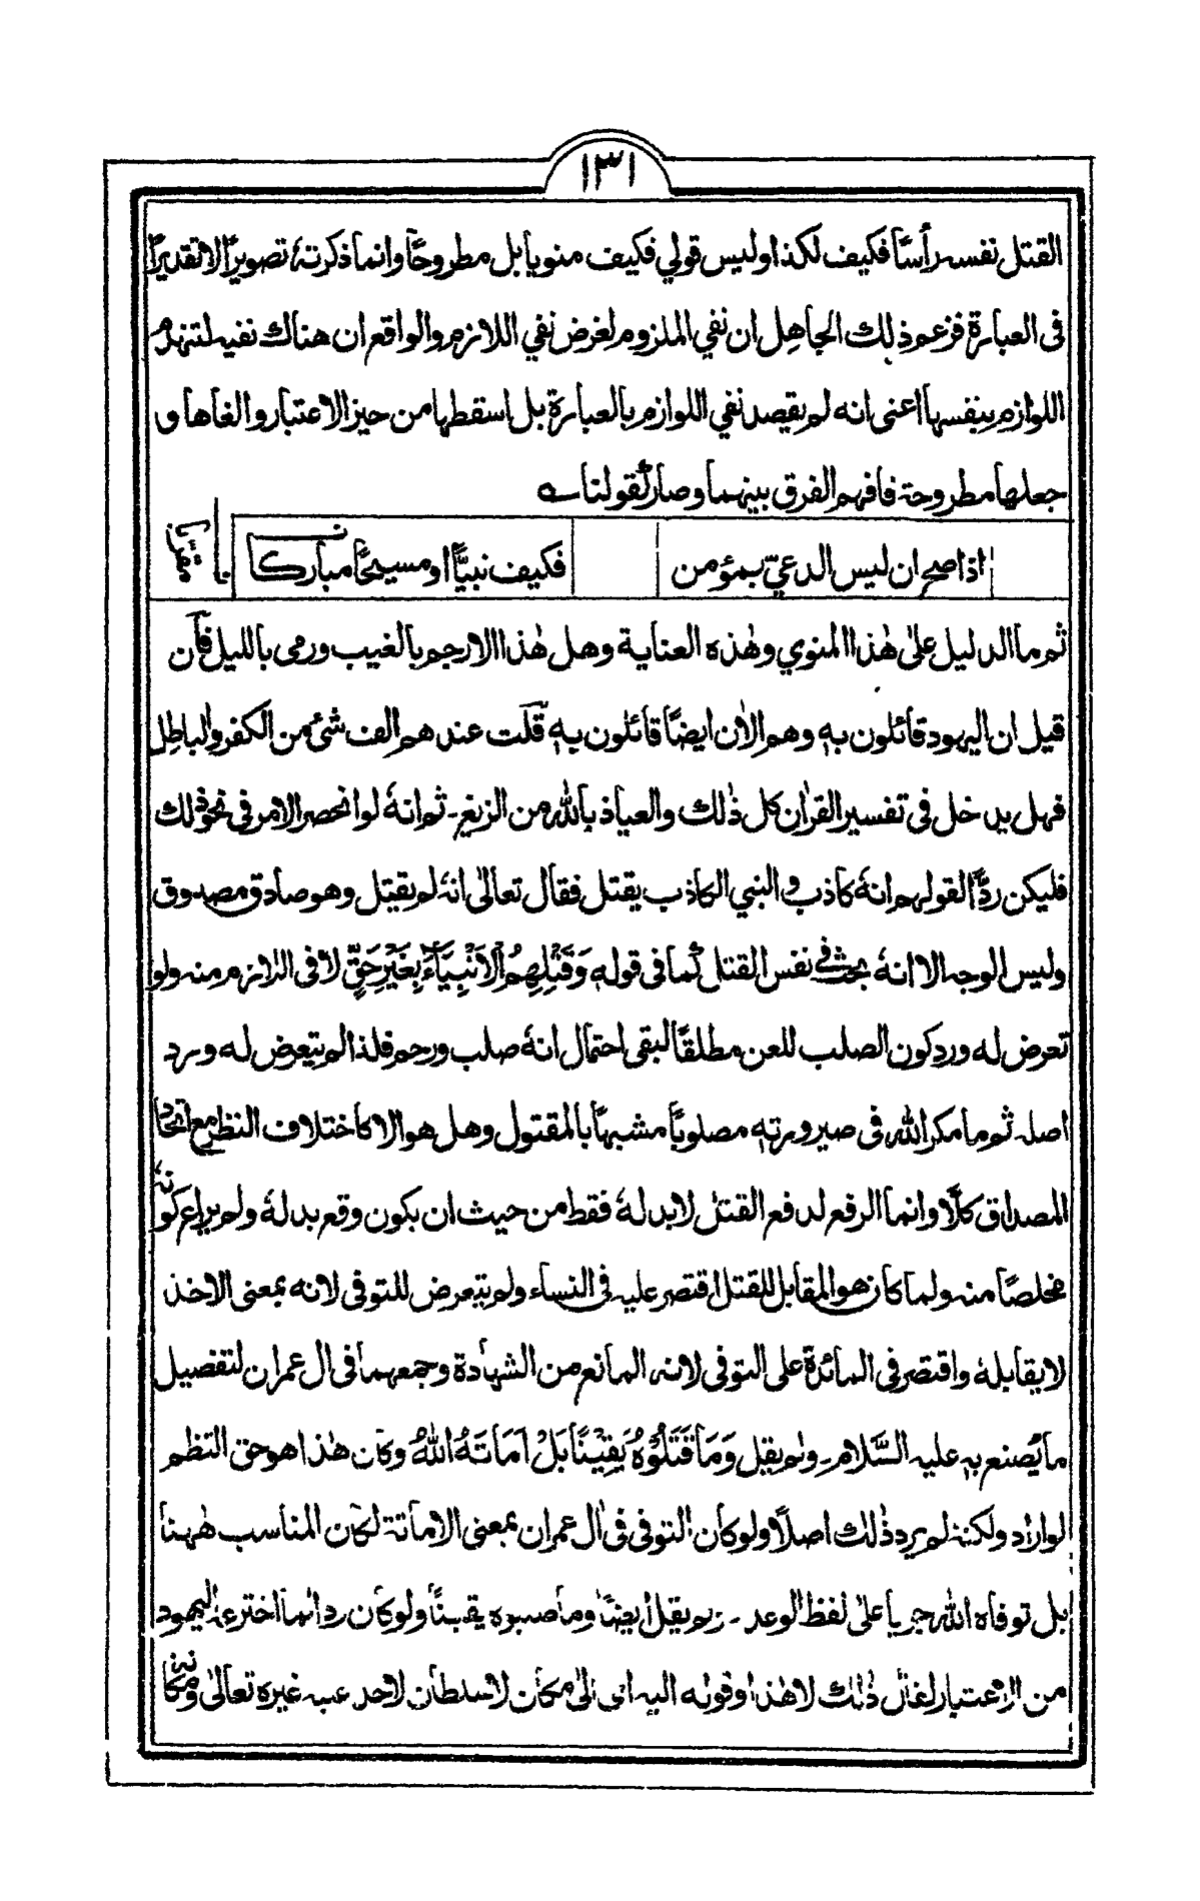 ١٣١
القتل نفسه رأسًا فكيف لكذا وليس قولي فكيف منويا بل مطروحًا وانما ذكرته تصويرًا لا تقديرًا
فى العبارة فزعم ذلك الجاهل ان نفي الملزوم لغرض نفي اللازم والواقع ان هناك نفيه لتنهدم
اللوازم بنفسها اعنى انه لم يقصد نفي اللوازم بالعبارة بل اسقطها من حيز الاعتبار والغاها و
جعلها مطروحة فافهم الفرق بينهما وصار كقولنا ــه
اذا صح ان ليس الدعيّ بمؤمن فكيف نبيًّا او مسيحًا مباركا
ثم ما الدليل علىٰ هٰذا المنوي وهٰذه العناية وهل هٰذا الا رجم بالغيب ورمى بالليل فآن
قيل ان اليهود قائلون به وهم الاٰن ايضًا قائلون به قلت عندهم الف شئ من الكفر والباطل
فهل يدخل فى تفسير القراٰن كل ذٰلك والعياذ بالله من الزيغ۔ ثم انهٗ لو انحصر الامر فى نحو ذٰلك
فليكن ردًّا لقولهم انهٗ كاذب والنبي الكاذب يقتل فقال تعالىٰ انهٗ لم يقتل وهو صادق مصدوق
وليس الوجه الا انهٗ بحث فى نفس القتل كما فى قوله وَقَتْلِهِمُ الْاَنْبِيَآءَ بِغَيْرِ حَقٍّ لا فى اللازم منه ولو
تعرض له ورد كون الصلب للعن مطلقًا لبقى احتمال انهٗ صلب ورحم فلذا لم يتعرض له ورد
اصله ثم ما مكر الله فى صيرورته مصلوبًا مشبهًا بالمقتول وهل هو الا كاختلاف النظر مع اتحاد
المصداق كلّا وانما الرفع لدفع القتل لا بدلهٗ فقط من حيث ان يكون وقع بدلهٗ ولم يراع كونهٗ
مخلصًا منه ولما كان هو المقابل للقتل اقتصر عليه فى النساء ولم يتعرض للتوفى لانه بمعنى الاخذ
لا يقابلهٗ واقتصر فى المائدة على التوفى لانه المانع من الشهادة وجمعهما فى ال عمران لتفصيل
ما يُصنع به عليه السَّلام۔ ولم يقل وَمَا قَتَلُوْهُ يَقِيْنًا بَلْ اَمَاتَهُ اللّٰهُ وكان هٰذا هو حق النظم
لو اراد ولكنه لم يرد ذٰلك اصلًا ولو كان التوفى فى اٰل عمران بمعنى الاماتة لكان المناسب هٰهنا
بل توفاه الله جريا علىٰ لفظ الوعد۔ ولم يقل ايضًا وما صلبوه يقينًا ولو كان ردا لما اخترعهٗ اليهود
من الاعتبار لقال ذٰلك لا هٰذا وقوله اليه اى الىٰ مكان لا سلطان لاحد عليه غيره تعالىٰ ومكانهٗ